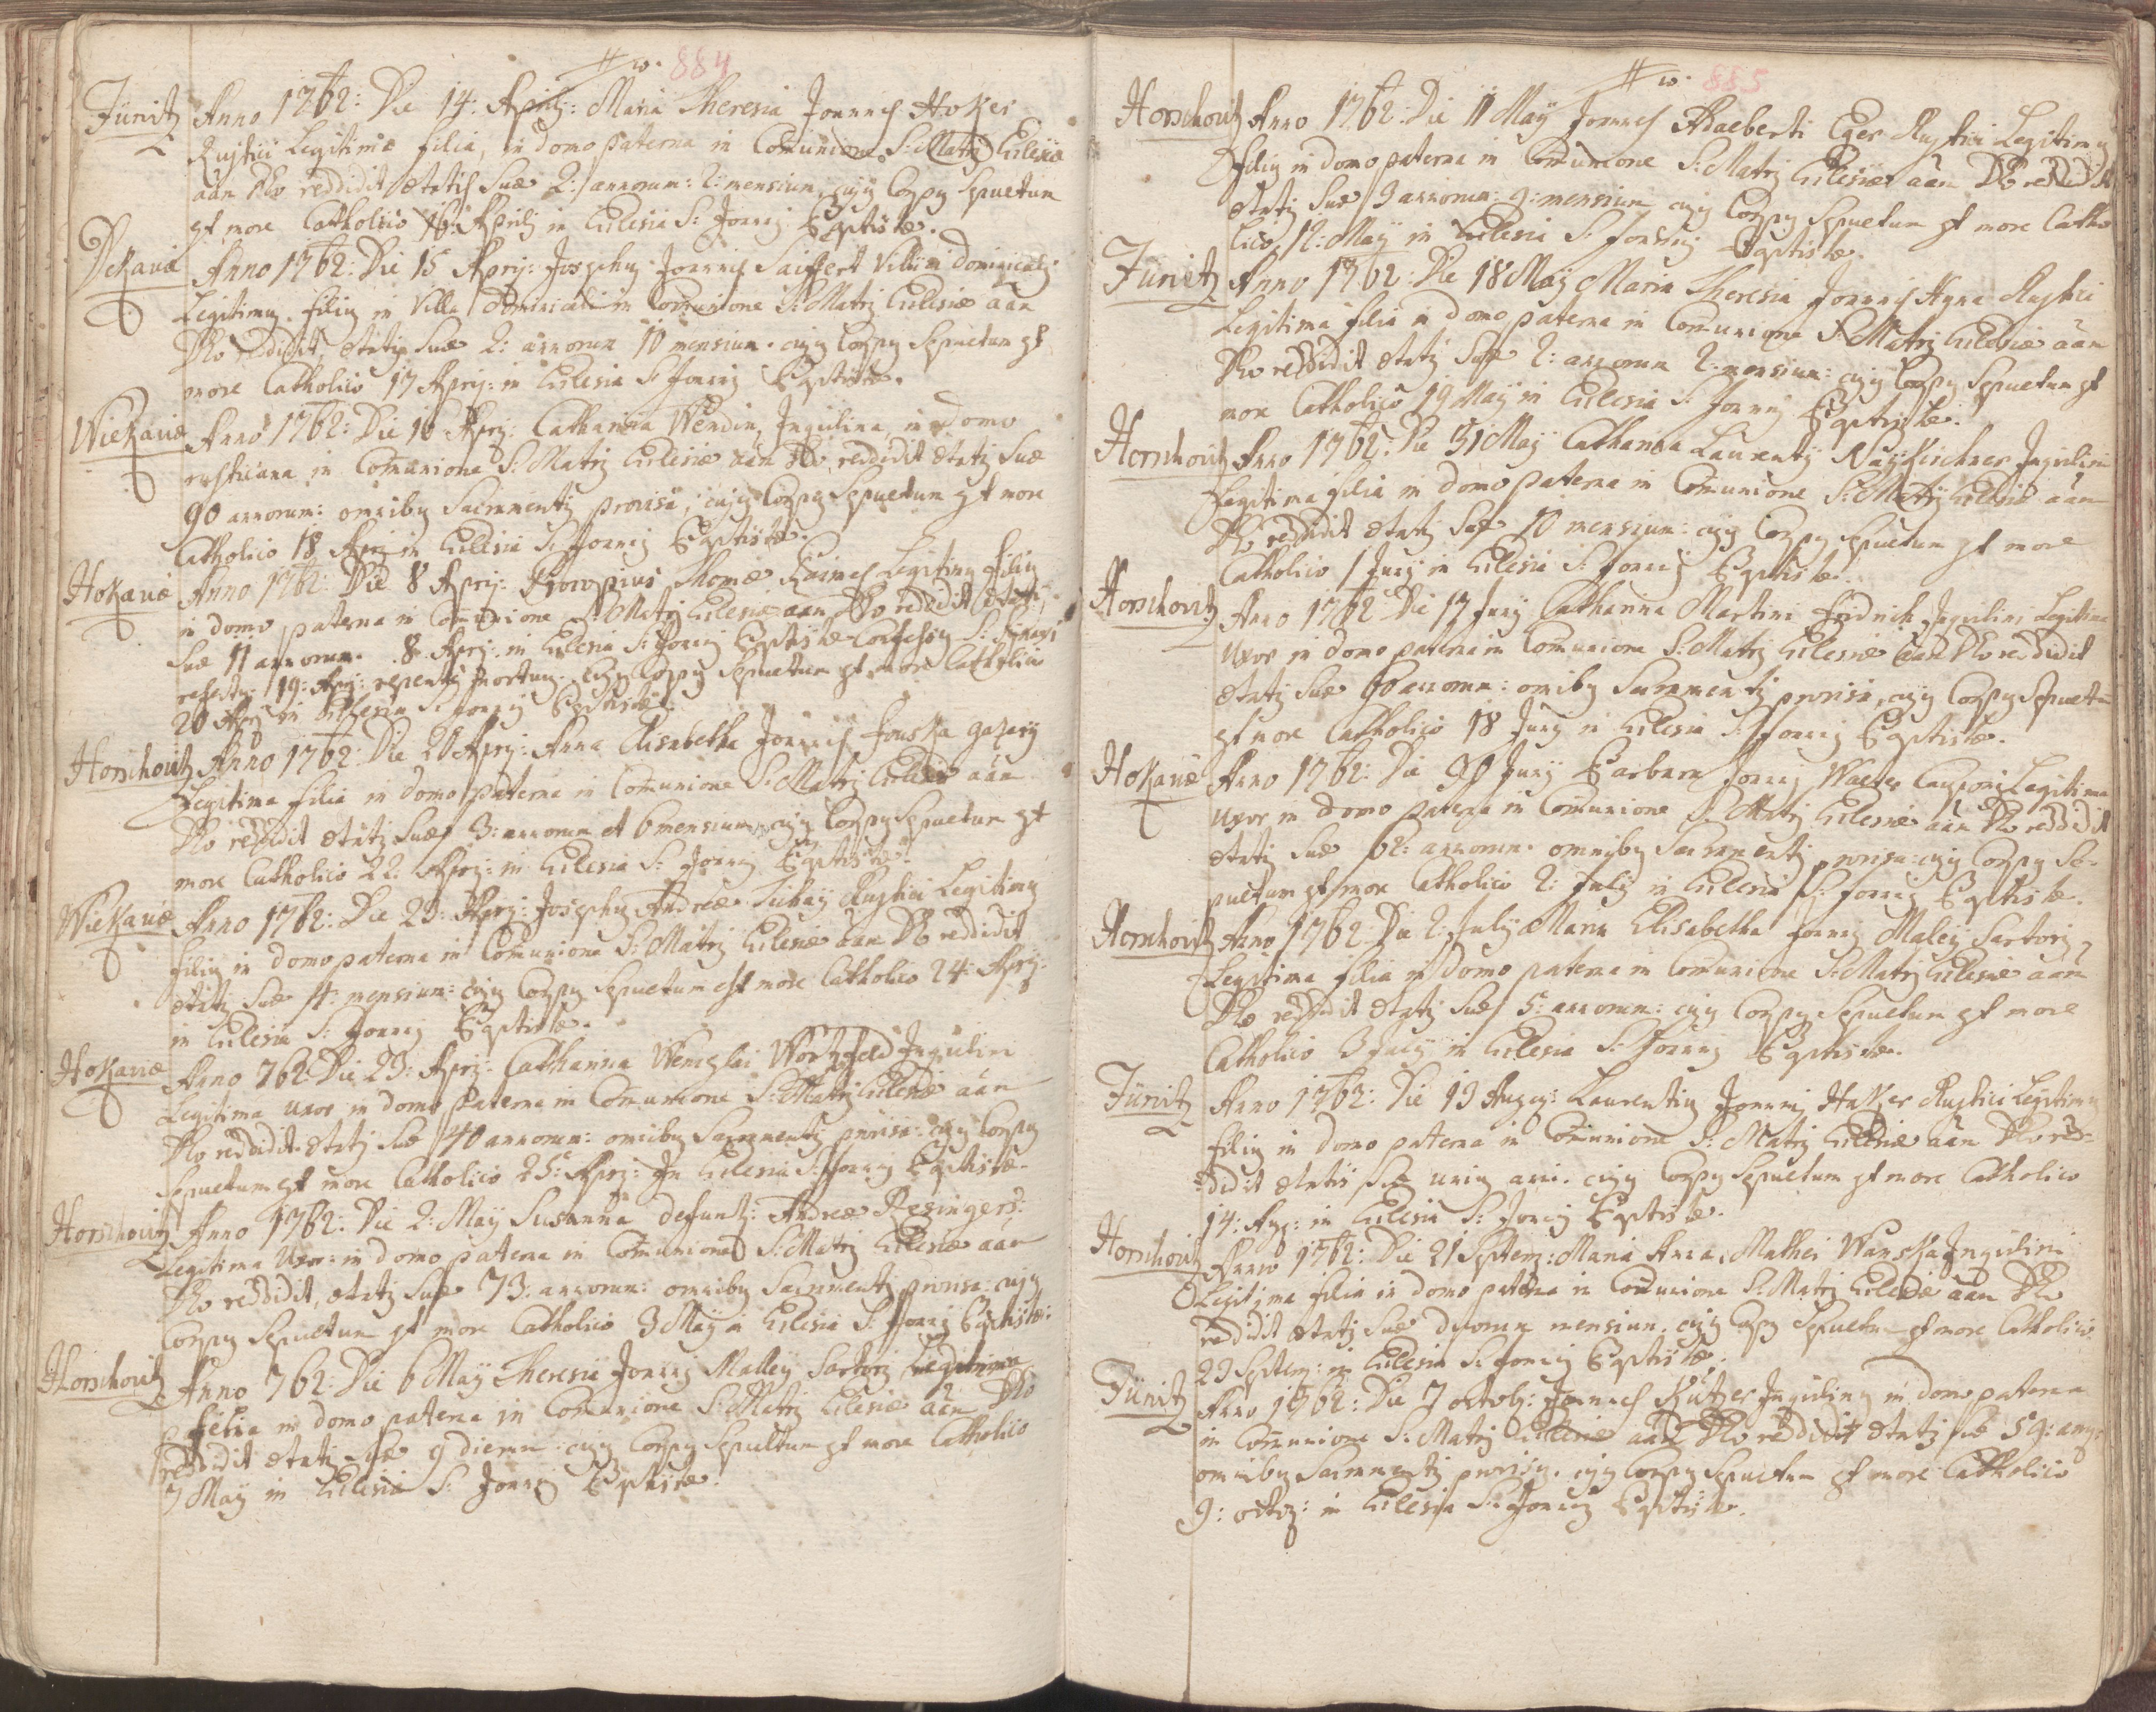 884
Jünitz Anno 1762: Die 14: Aprilis: Maria Theresia Joannes Hoker
Rustici Legitimæ filia, in domo paterna in Comunione S: Matris Ecclesiæ
aām Deo reddidit ætatis suæ 2: annorum: 2: mensium, cujus Corpus sepultum
est more Catholico 16: Aprilis in Ecclesia S: Joannis Baptistæ.
Dekaviæ Anno 1762: Die 15 Apris: Josephus Joannes Saiffert Villici Dominicalis
Legitimus filius in Villa dominicali in Comunione S: Matris Ecclesiæ aām
Deo reddidit, ætatis suæ 2: annorum 10 mensium. cujus Corpus sepultum est
more Catholico 17 Apris: in Ecclesia S: Joannis Baptistæ.
Wiekaviæ Anno 1762: Die 16 Apris: Catharina Wendin, Inquilina, in domo
rusticana in Comunione S: Matris Ecclesiæ aām Deo reddidit ætatis suæ
90 annorum: omnibus Sacramentis provisa, cujus Corpus sepultum est more
Catholico 18 Apris in Ecclesia S: Joannis Baptistæ.
Hokaviæ Anno 1762: Die 8 Apris: Procopius Thomæ Legitimus filius
in domo paterna in Comunione S: Matris Ecclesiæ aām Deo reddidit ætatis
suæ 11 annorum. 8 Apris: in Ecclesia S: Joannis Baptistæ Confessus S: Sinaxi
refectus 19: Apris: repente mortuus. cujus Corpus sepultum est more Catholico
20 Apris in Ecclesia S: Joannis Baptistæ.
Horschovitz Anno 1762: Die 20 Apris: Anna Elisabetha Joannes Fouska
Legitima filia in domo paterna in Comunione S: Matris Ecclesiæ aām
Deo reddidit ætatis suæ 3: annorum et 6 mensium, cujus Corpus sepultum est
more Catholico 22: Apris: in Ecclesia S: Joannis Baptistæ.
Wiekaviæ Anno 1762: Die 23: Apris: Josephus Andreæ Rustici Legitimus
filius in domo paterna in Comunione S: Matris Ecclesiæ aām Deo reddidit
ætatis suæ 4: mensium: cujus Corpus sepultum est more Catholico 24: Apris:
in Ecclesia S: Joannis Baptistæ.
Hokaviæ Anno 762: Die 23: Apris: Catharina Wenceslai Inquilini
Legitima uxor in domo paterna in Comunione S: Matris Ecclesiæ aām
Deo reddidit ætatis suæ 40 annorum: omnibus Sacramentis provisa: cujus Corpus
sepultum est more Catholico 25: Apris: In Ecclesia S: Joannis Baptistæ.
Horschovitz Anno 1762: Die 2: May Susanna defuncti: Andreæ Resinger
Legitima Uxor: in domo paterna in Comunione S: Matris Ecclesiæ aām
Deo reddidit, ætatis suæ 73: annorum: omnibus Sacramentis provisa: cujus
Corpus sepultum est more Catholico 3 May in Ecclesia S: Joannis Baptistæ:
Horschovitz Anno 762: Die 6 May Theresia Joannis Malley Sartoris Legitima
filia in domo paterna in Comunione S: Matris Ecclesiæ aām Deo
reddidit ætatis suæ 9 dierum: cujus Corpus sepultum est more Catholico
7 May in Ecclesia S: Joannis Baptistæ.
885
Horschovitz Anno 1762: Die 11 May Joannes Adalberti Eger Rustici Legitimus
filius in domo paterna in Comunione S: Matris Ecclesiæ aām Deo reddidit
ætatis suæ 3 annorum: 9: mensium cujus Corpus sepultum est more Catho
lico, 12: May in Ecclesia S: Joannis Baptistæ.
Jünitz Anno 1762: Die 18 May Maria Theresia Joannes Rustici
Legitima filia in domo paterna in Comunione S: Matris Ecclesiæ aām
Deo reddidit ætatis suæ 2: annorum 2: mensium: cujus Corpus sepultum est
more Catholico 19 May in Ecclesia S: Joannis Baptistæ.
Horschovitz Anno 1762: Die 31 May Catharina Laurentii Inquilini
Legitima filia in domo paterna in Comunione S: Matris Ecclesiæ aām
Deo reddidit ætatis suæ 10 mensium: cujus Corpus sepultum est more
Catholico 1 Junij in Ecclesia S: Joannis Baptistæ.
Horschovitz Anno 1762: Die 17 Junij Catharina Martini Fridrich, Inquilini Legitima
Uxor in domo paterna in Comunione S: Matris Ecclesiæ aām Deo reddidit
ætatis suæ 60 annorum: omnibus Sacramentis provisa, cujus Corpus sepultum
est more Catholico 18 Junij in Ecclesia S: Joannis Baptistæ.
Hokaviæ Anno 1762: Die 30 Junij Barbara Joannis Walter Legitima
uxor in domo paterna in Comunione S: Matris Ecclesiæ aām Deo reddidit
ætatis suæ 62: annorum. omnibus Sacramentis provisa: cujus Corpus se-
pultum est more Catholico 2: Julij in Ecclesia S: Joannis Baptistæ.
Horschovitz Anno 1762 Die 2: July Maria Elisabetha Joannis Maley Sartoris
Legitima filia in domo paterna in Comunione S: Matris Ecclesiæ aām
Deo reddidit ætatis suæ 5: annorum: cujus Corpus sepultum est more
Catholico 3 July in Ecclesia S: Joannis Baptistæ.
Jünitz Anno 1762: Die 13 Augus: Laurentius Joannis Haker Rustici Legitimus
filius in domo paterna in Comunione S: Matris Ecclesiæ aām Deo red-
didit ætatis suæ unius anni. cujus Corpus sepultum est more Catholico
14: Aug: in Ecclesia S: Joannis Baptistæ.
Horschovitz Anno 1762: Die 21 Septem: Maria Anna, Mathei Wanska Inquilini
Legitima filia in domo paterna in Comunione S: Matris Ecclesiæ aām Deo
reddidit ætatis suæ duorum mensium. cujus Corpus sepultum est more Catholico
23 Septem: in Ecclesia S: Joannis Baptistæ.
Jünitz Anno 1762: Die 7 octob: Joannes Rützer Inquilinus in domo paterna
in Comunione S: Matris Ecclesiæ aām Deo reddidit ætatis suæ 59: annor:
omnibus Sacramentis provisus. cujus Corpus sepultum est more Catholico
9: octob: in Ecclesia S: Joannis Baptistæ.